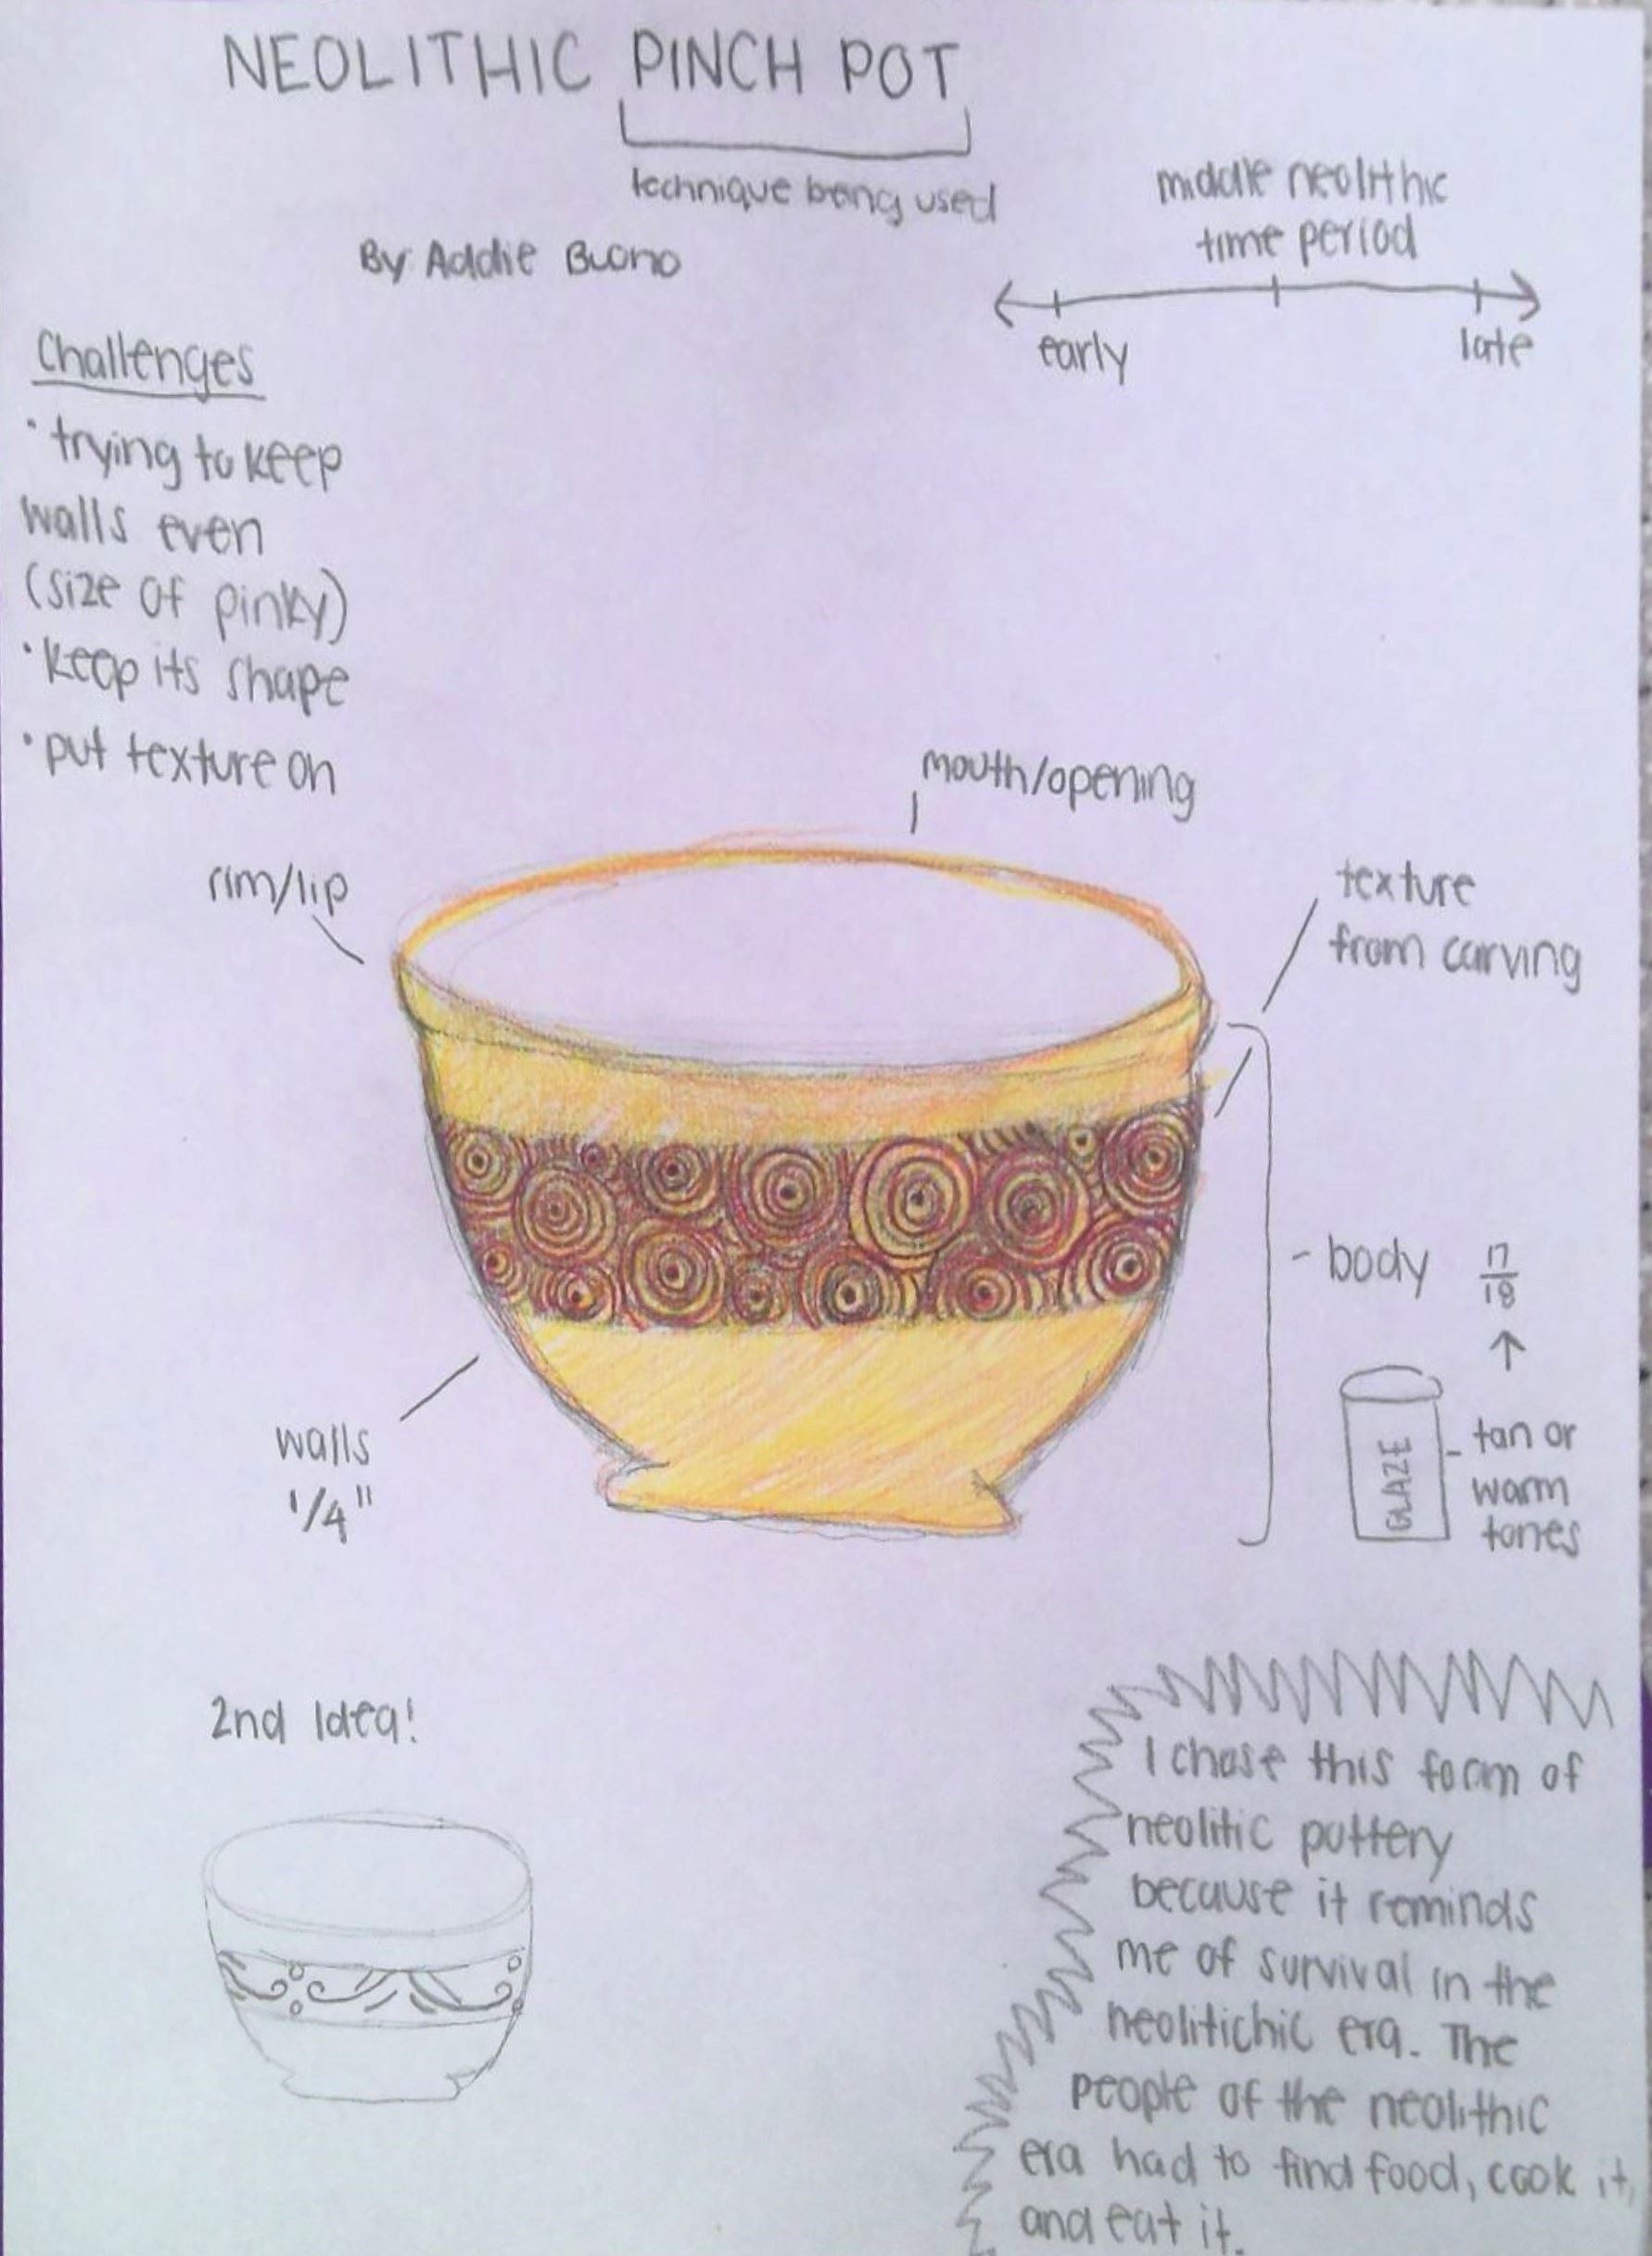 NEOLITHIC PINCH POT
technique being used
By Addie Buono
middle neolithic
time period
early
late
Challenges
• trying to keep
walls even
(size of pinky)
• keep its shape
• put texture on
mouth/opening
rim/lip
texture
from carving
- body
17
18
GLAZE
- tan or
warm
tones
walls
1/4"
2nd Idea!
I chose this form of
neolitic pottery
because it reminds
me of survival in the
neolitichic era. The
people of the neolithic
era had to find food, cook it,
and eat it.